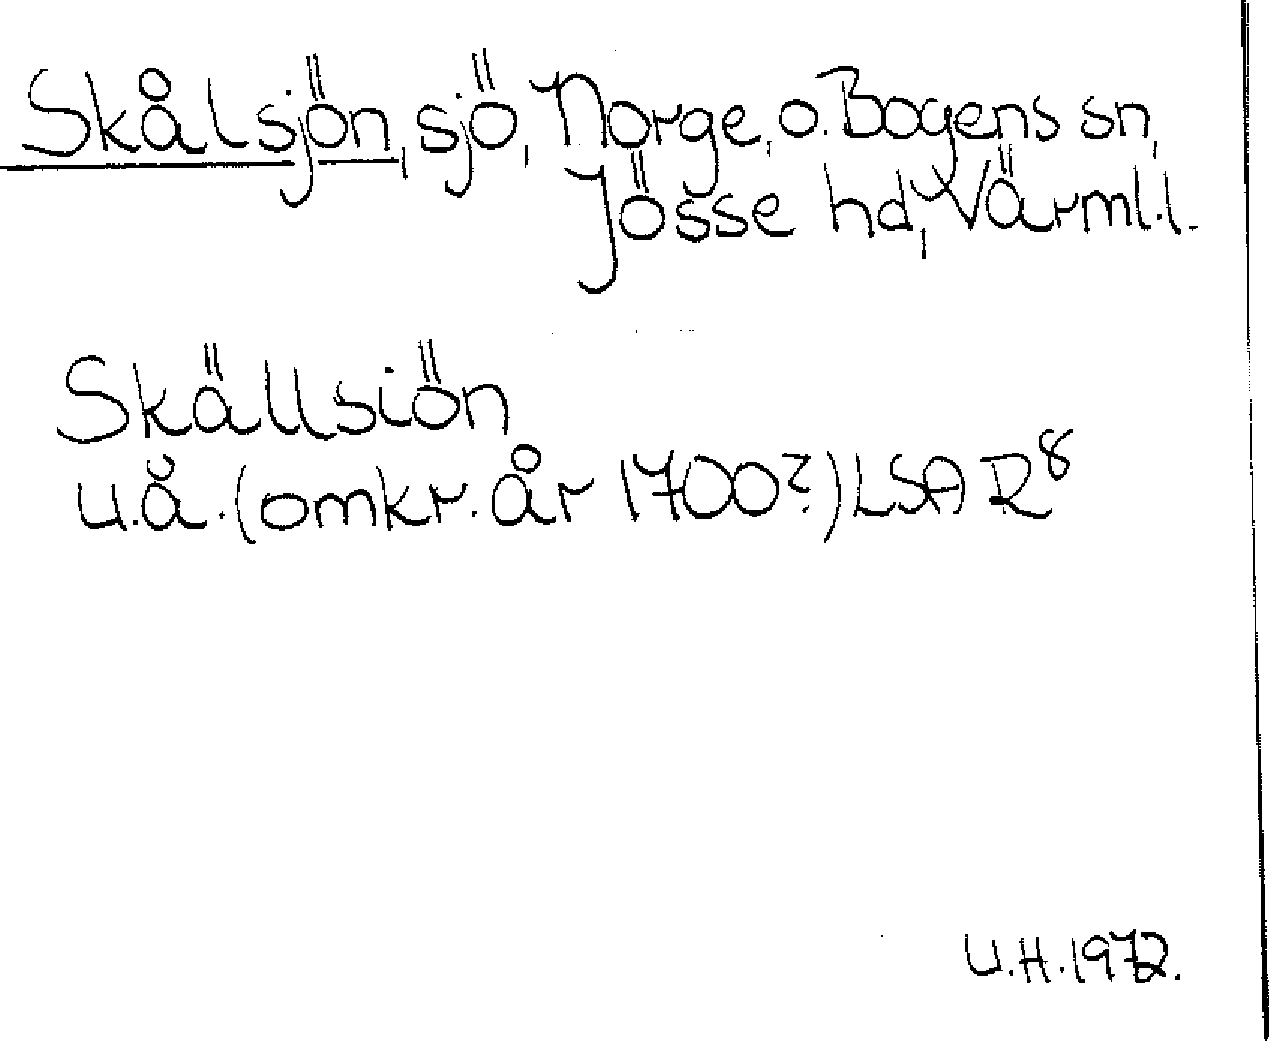 Skålsjön, sjö, Norge, o. Bogens sn,
Jösse hd, Värml.l.
Skällsiön
u.å. (omkr. år 1700?) LSA R8
U.H. 1972.